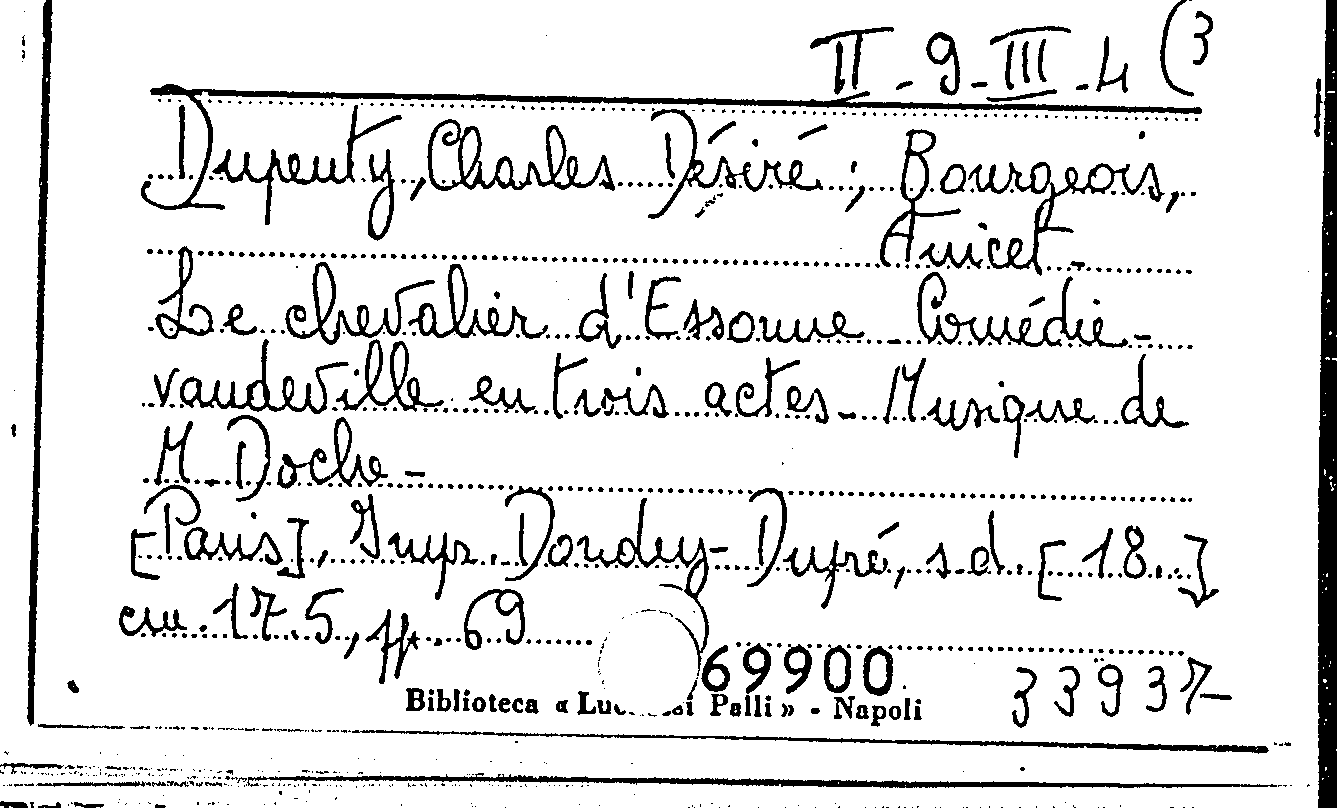 II - 9 - III - 4 (3
Dupeuty, Charles Désiré; Bourgeois,
Anicet -
Le chevalier d'Essonne - Comédie -
vaudeville en trois actes - Musique de
M. Doche -
[Paris], Imp. Dondey-Dupré, s d. [18..]
cm. 17.5, pp. 69
69900
33937
Biblioteca « Palli » - Napoli